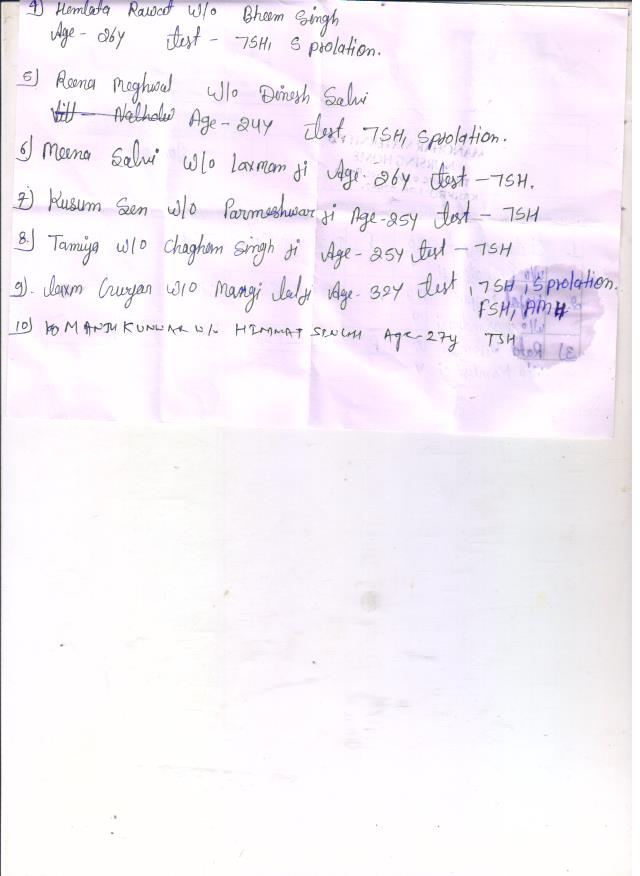 4) Hemlata Rawat w/o Bheem Singh
Age - 26y test - TSH, S prolation.
5) Reena Meghwal w/o Dinesh Salvi
Age - 24y test, TSH, S prolation.
6) Meena Salvi w/o Laxman ji Age - 26y test - TSH.
7) Kusum Sen w/o Parmeshwar ji Age - 25y test - TSH
8.) Tamiya w/o Chaghan Singh ji Age - 25y test - TSH
9). laxm Gurjar w/o Mangi lal ji Age - 32y test, TSH, S prolation.
FSH, AMH
10) MANJU KUNWAR w/o HIMMAT SINGH Age - 27y TSH